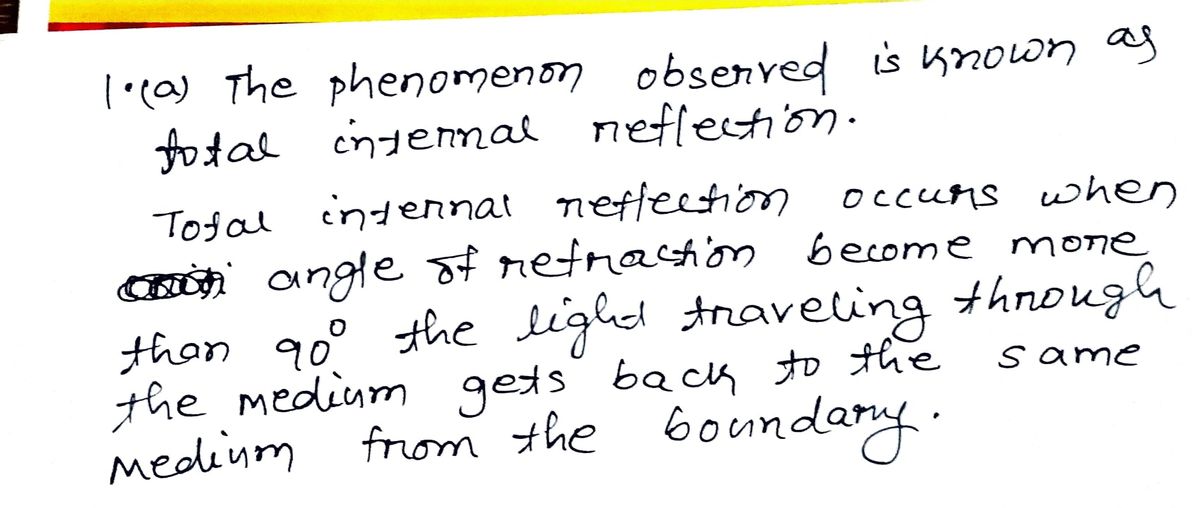 1.(a) The phenomenon observed is known as
total internal reflection.
Total internal reflection occurs when
angle of refraction become more
than 90° the light traveling through
the medium gets back to the same
medium from the boundary.